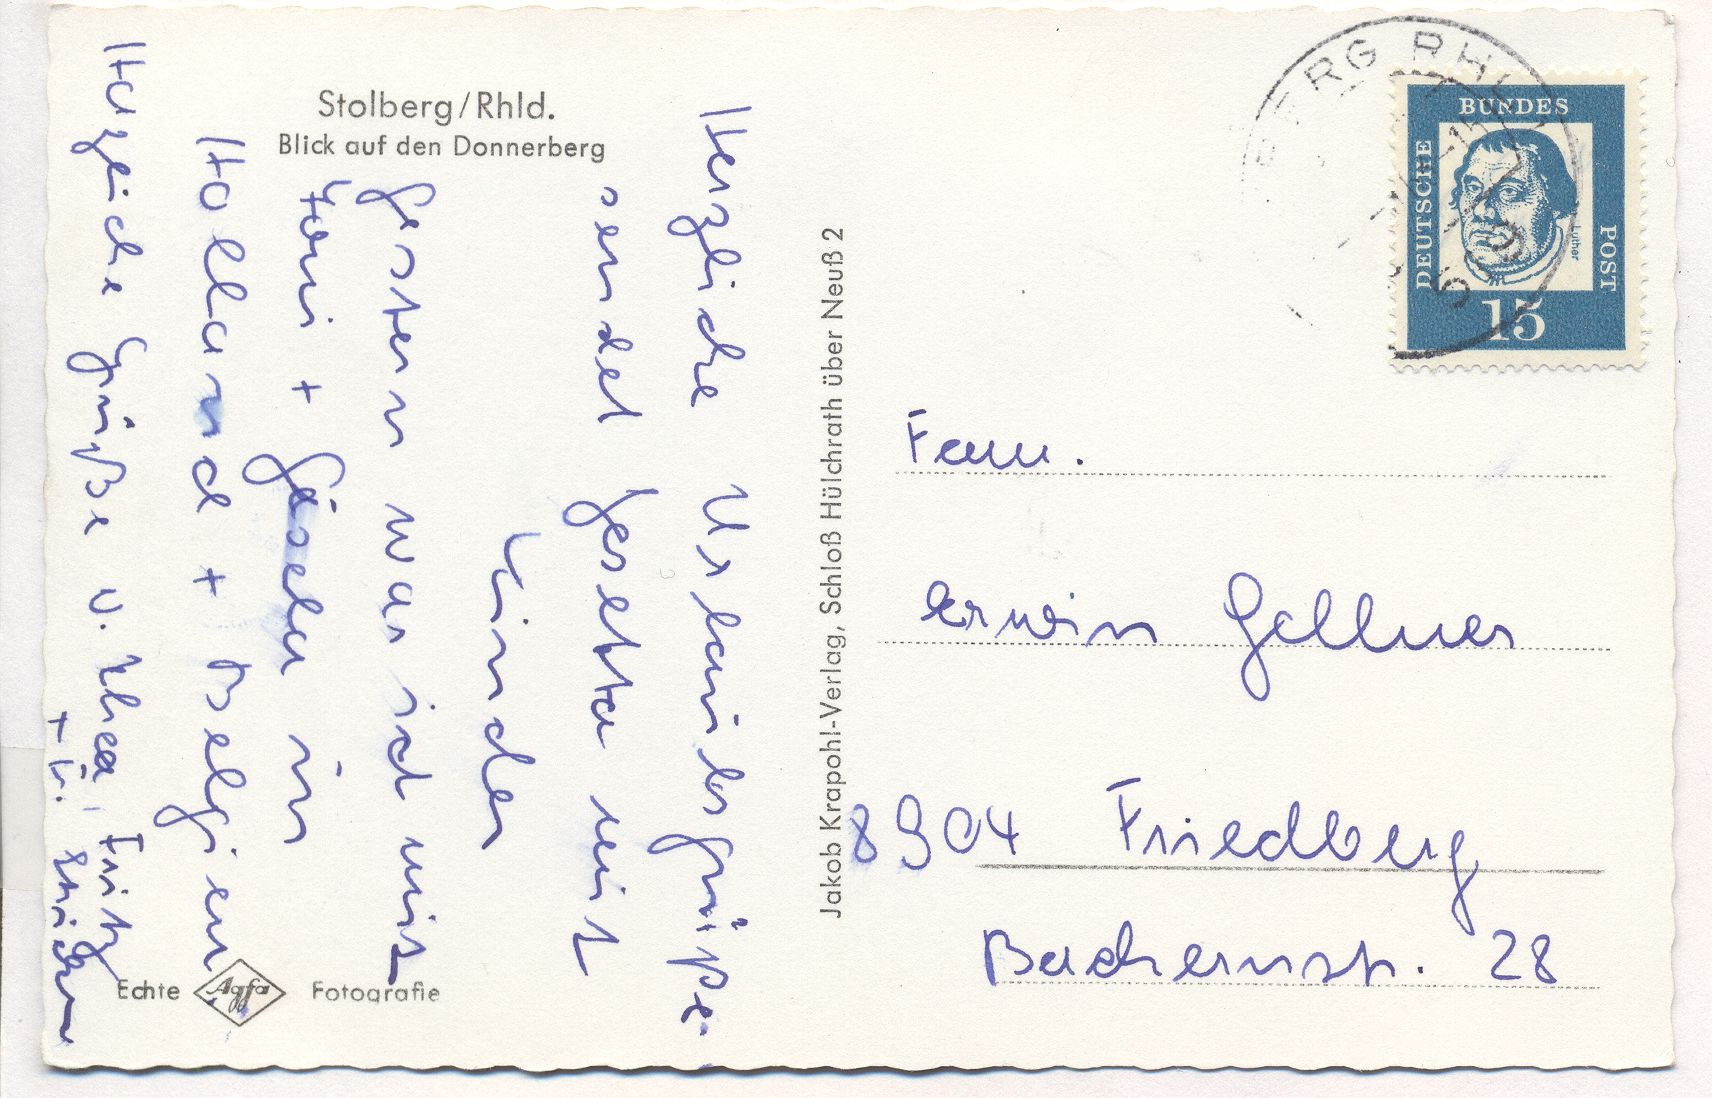 Stolberg/Rhld.
Blick auf den Donnerberg
Herzliche Urlaubsgrüße
sendet Jesetta mit
Kinder
Gestern war ich mit
Toni + Gisela in
Holland + Belgien
Herzliche Grüße v. Thea, Fritz
+
Echte Agfa Fotografie
Jakob Krapohl-Verlag, Schloß Hülchrath über Neuß 2
BERG RHL
DEUTSCHE
BUNDES
POST
Luther
15
Fam.
Erwin Gellner
8904 Friedberg
Bachernstr. 28